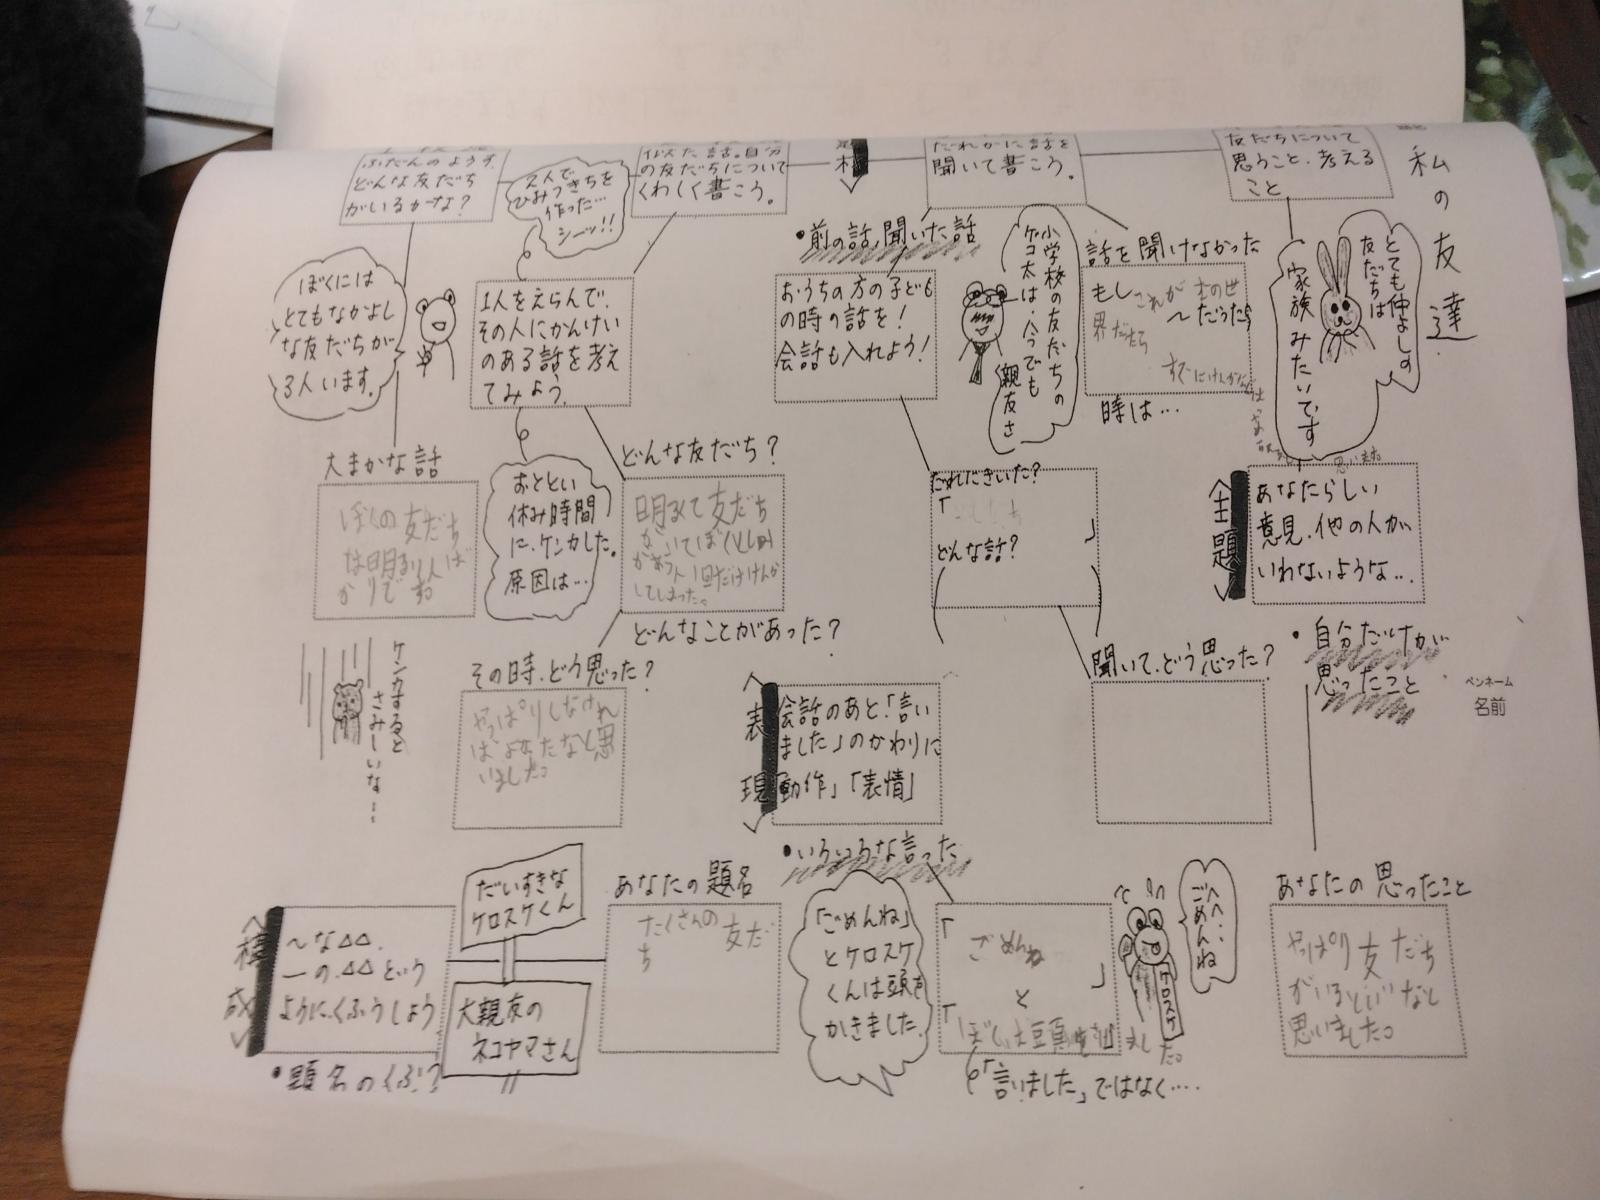 私の友達
ペンネーム
名前
友だちについて
思うこと、考える
こと
とても仲よしな
友だちは
家族みたいです
あなたらしい
意見、他の人が
いわないような…
主題
・自分だけが
思ったこと
あなたの思ったこと
やっぱり友だち
がいるといいなと
思いました。
だれかに話を
聞いて書こう。
・前の話、聞いた話
おうちの方の子ども
の時の話を!
会話も入れよう!
小学校の友だちの
ケコ太は、今でも
親友さ
話を聞けなかった
もしこれが
界だったら
〜だったら
時は…
だれにきいた?
「
」
どんな話?
聞いて、どう思った?
表現
会話のあと、「言い
ました」のかわりに
「動作」「表情」
・いろいろな言った
「ごめんね」
とケロスケ
くんは頭を
かきました。
「ごめんね
」
と
ました。
「言いました」ではなく‥‥
へへ‥
ごめんね
ケロスケ
似た話。自分
の友だちについて
くわしく書こう。
2人で
ひみつきちを
作った…
シーッ!!
1人をえらんで、
その人にかんけい
のある話を考え
てみよう。
おととい
休み時間
に、ケンカした。
原因は…
どんな友だち?
明るくて友だち
1回だけけんか
してしまった。
どんなことがあった?
その時、どう思った?
やっぱりしなけれ
ばよかったなと思
いました。
ふだんのようす。
どんな友だち
がいるかな?
ぼくには
とてもなかよし
な友だちが
3人います。
大まかな話
ぼくの友だち
は明るい人ば
かりです。
ケンカすると
さみしいな…
構成
〜な△△、
―の△△という
ようにくふうしよう
・題名のくふう
だいすきな
ケロスケくん
大親友の
ネコヤマさん
あなたの題名
たくさんの友だ
ち